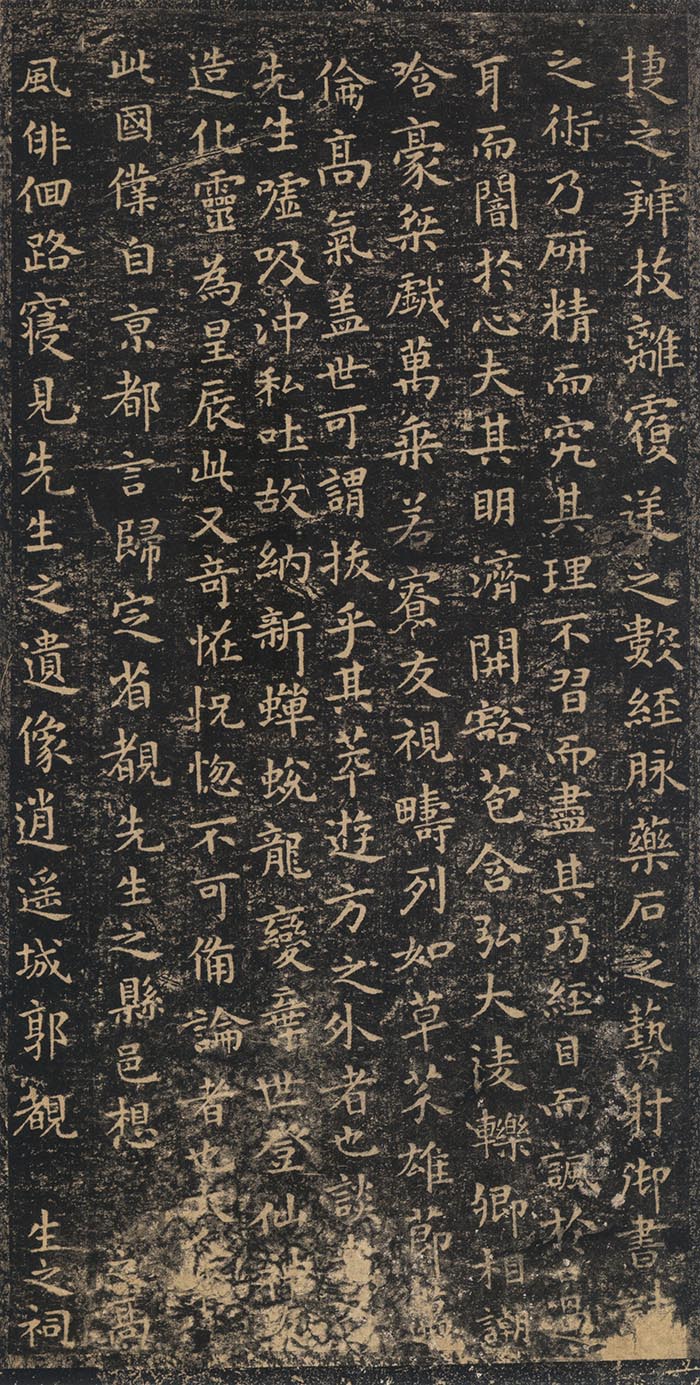 捷之辨枝離覆逆之數經脉藥石之藝射御書計
之術乃研精而究其理不習而盡其巧經目而諷於口過
耳而闇於心夫其明濟開豁苞含弘大淩轢卿相謿
哈豪桀戲萬乘若寮友視疇列如草芥雄節邁
倫高氣盖世可謂拔乎其萃遊方之外者也談者又
先生噓吸沖和吐故納新蟬蛻龍變棄世登仙神友
造化靈為星辰此又奇恠怳惚不可俻論者也大人
此國僕自京都言歸定省覩先生之縣邑想 之高
風徘徊路寢見先生之遺像逍遥城郭覩 生之祠